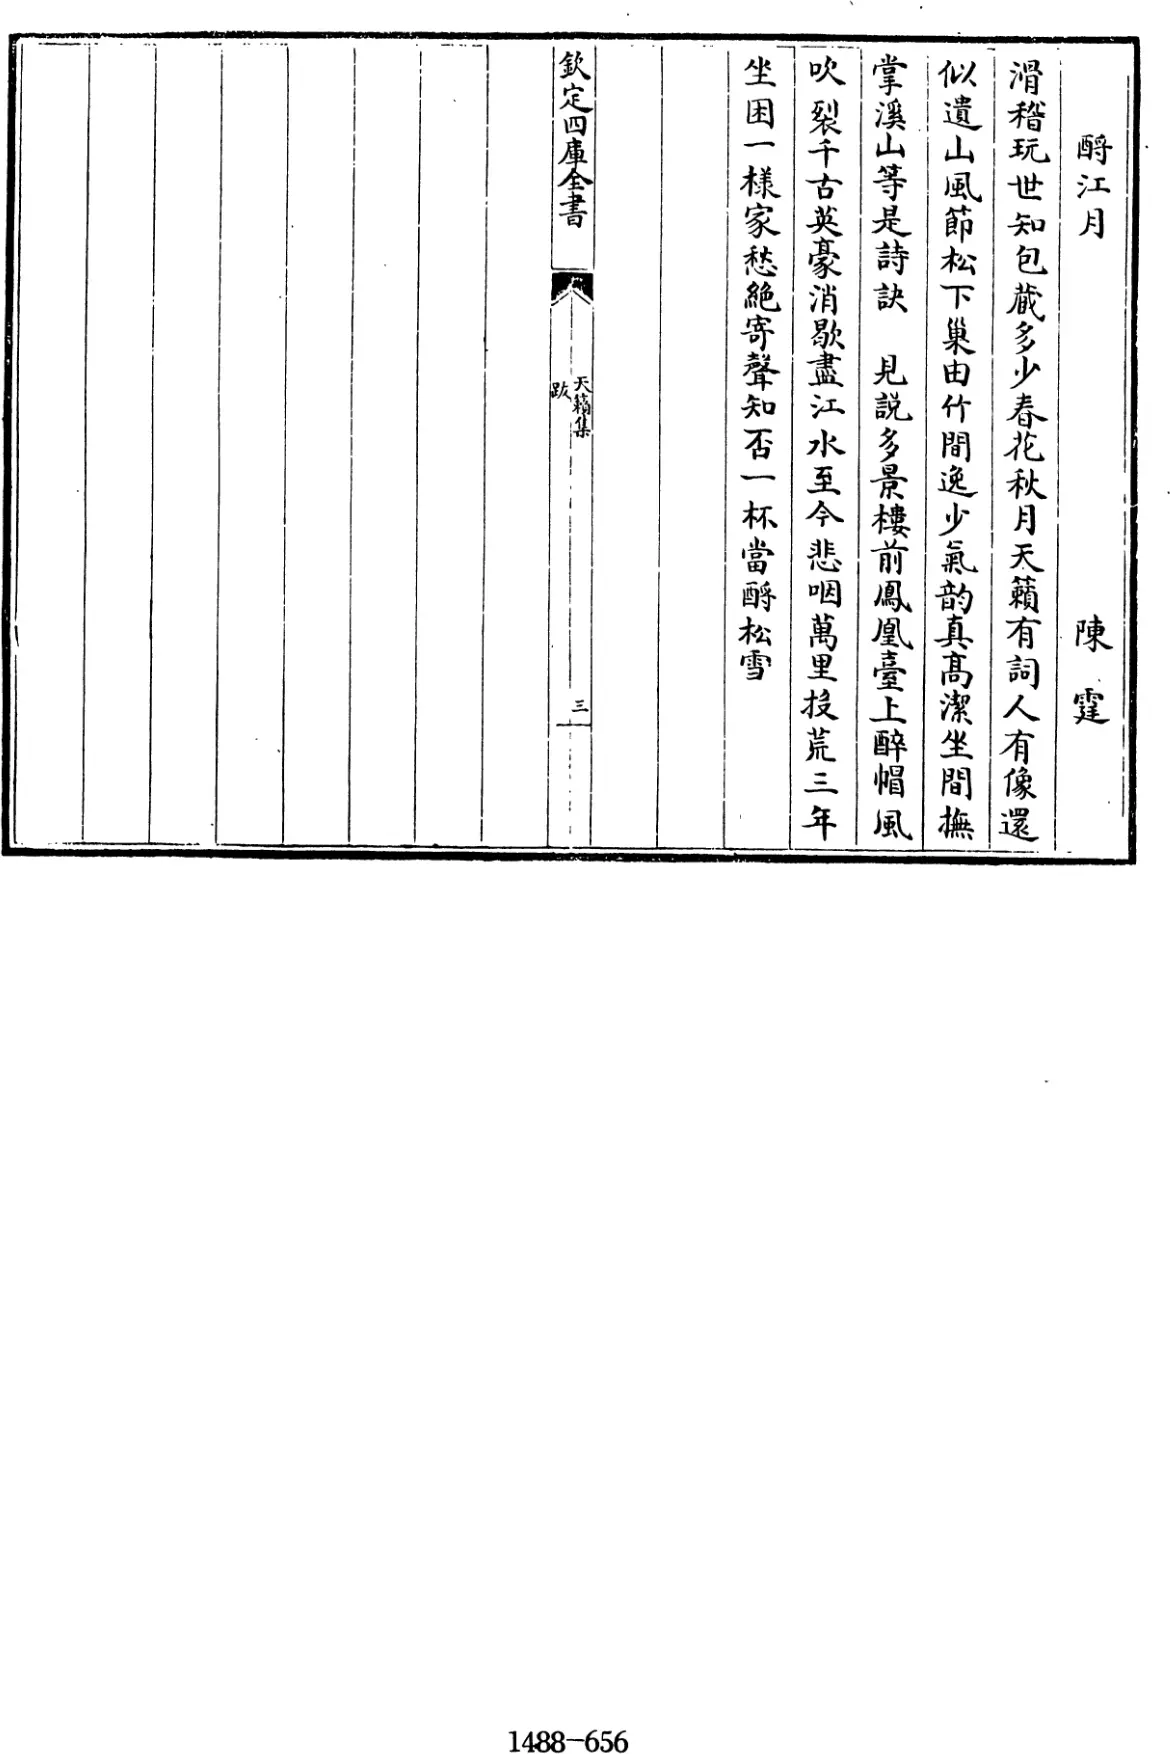 酹江月　陳霆
滑稽玩世知包蔵多少春花秋月天籟有詞人有像還
似遺山風節松下巢由竹間逸少氣韵真髙潔坐間撫
掌溪山等是詩訣　見説多景樓前鳳凰臺上醉帽風
吹裂千古英豪消歇盡江水至今悲咽萬里投荒三年
坐困一様家愁絶寄聲知否一杯當酹松雪
欽定四庫全書
天籟集
跋
三
1488-656